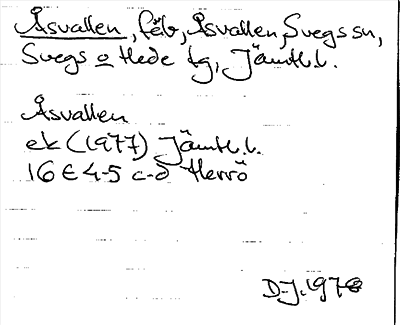 Åsvallen, fäb, Åsvallen, Svegs sn,
Svegs o Hede tg, Jämtl. l.
Åsvallen
ek (1977) Jämtl. l.
16 E 4-5 c-d Herrö
D-J. 1978